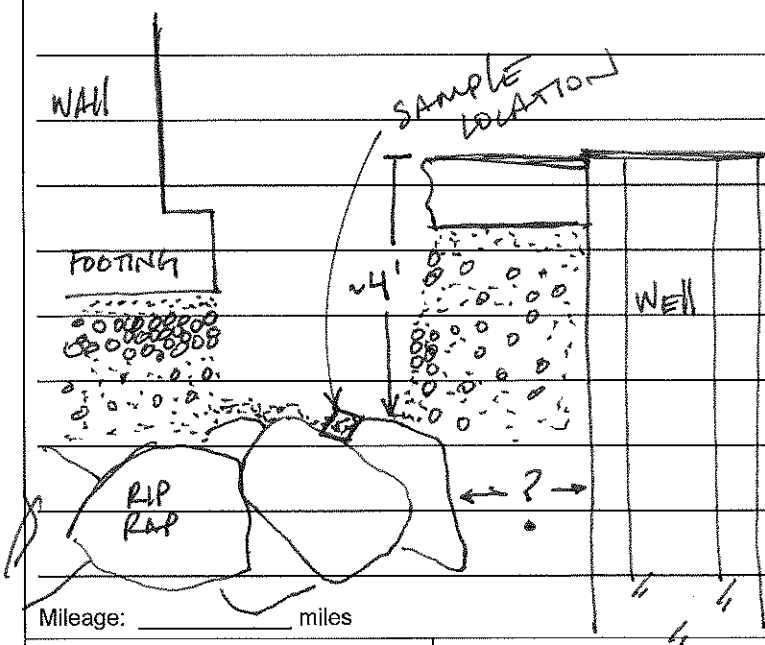 WAll
SAMPLE
LOCATION
FOOTING
~4'
WEll
RIP
RAP
?
Mileage: ________ miles